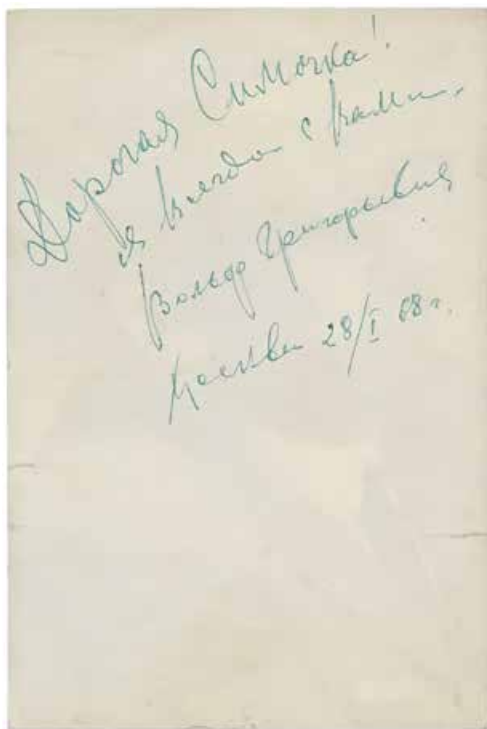 Дорогая Симочка!
я всегда с вами.
Вольф Григорьевич
Москва 28/I 68 г.